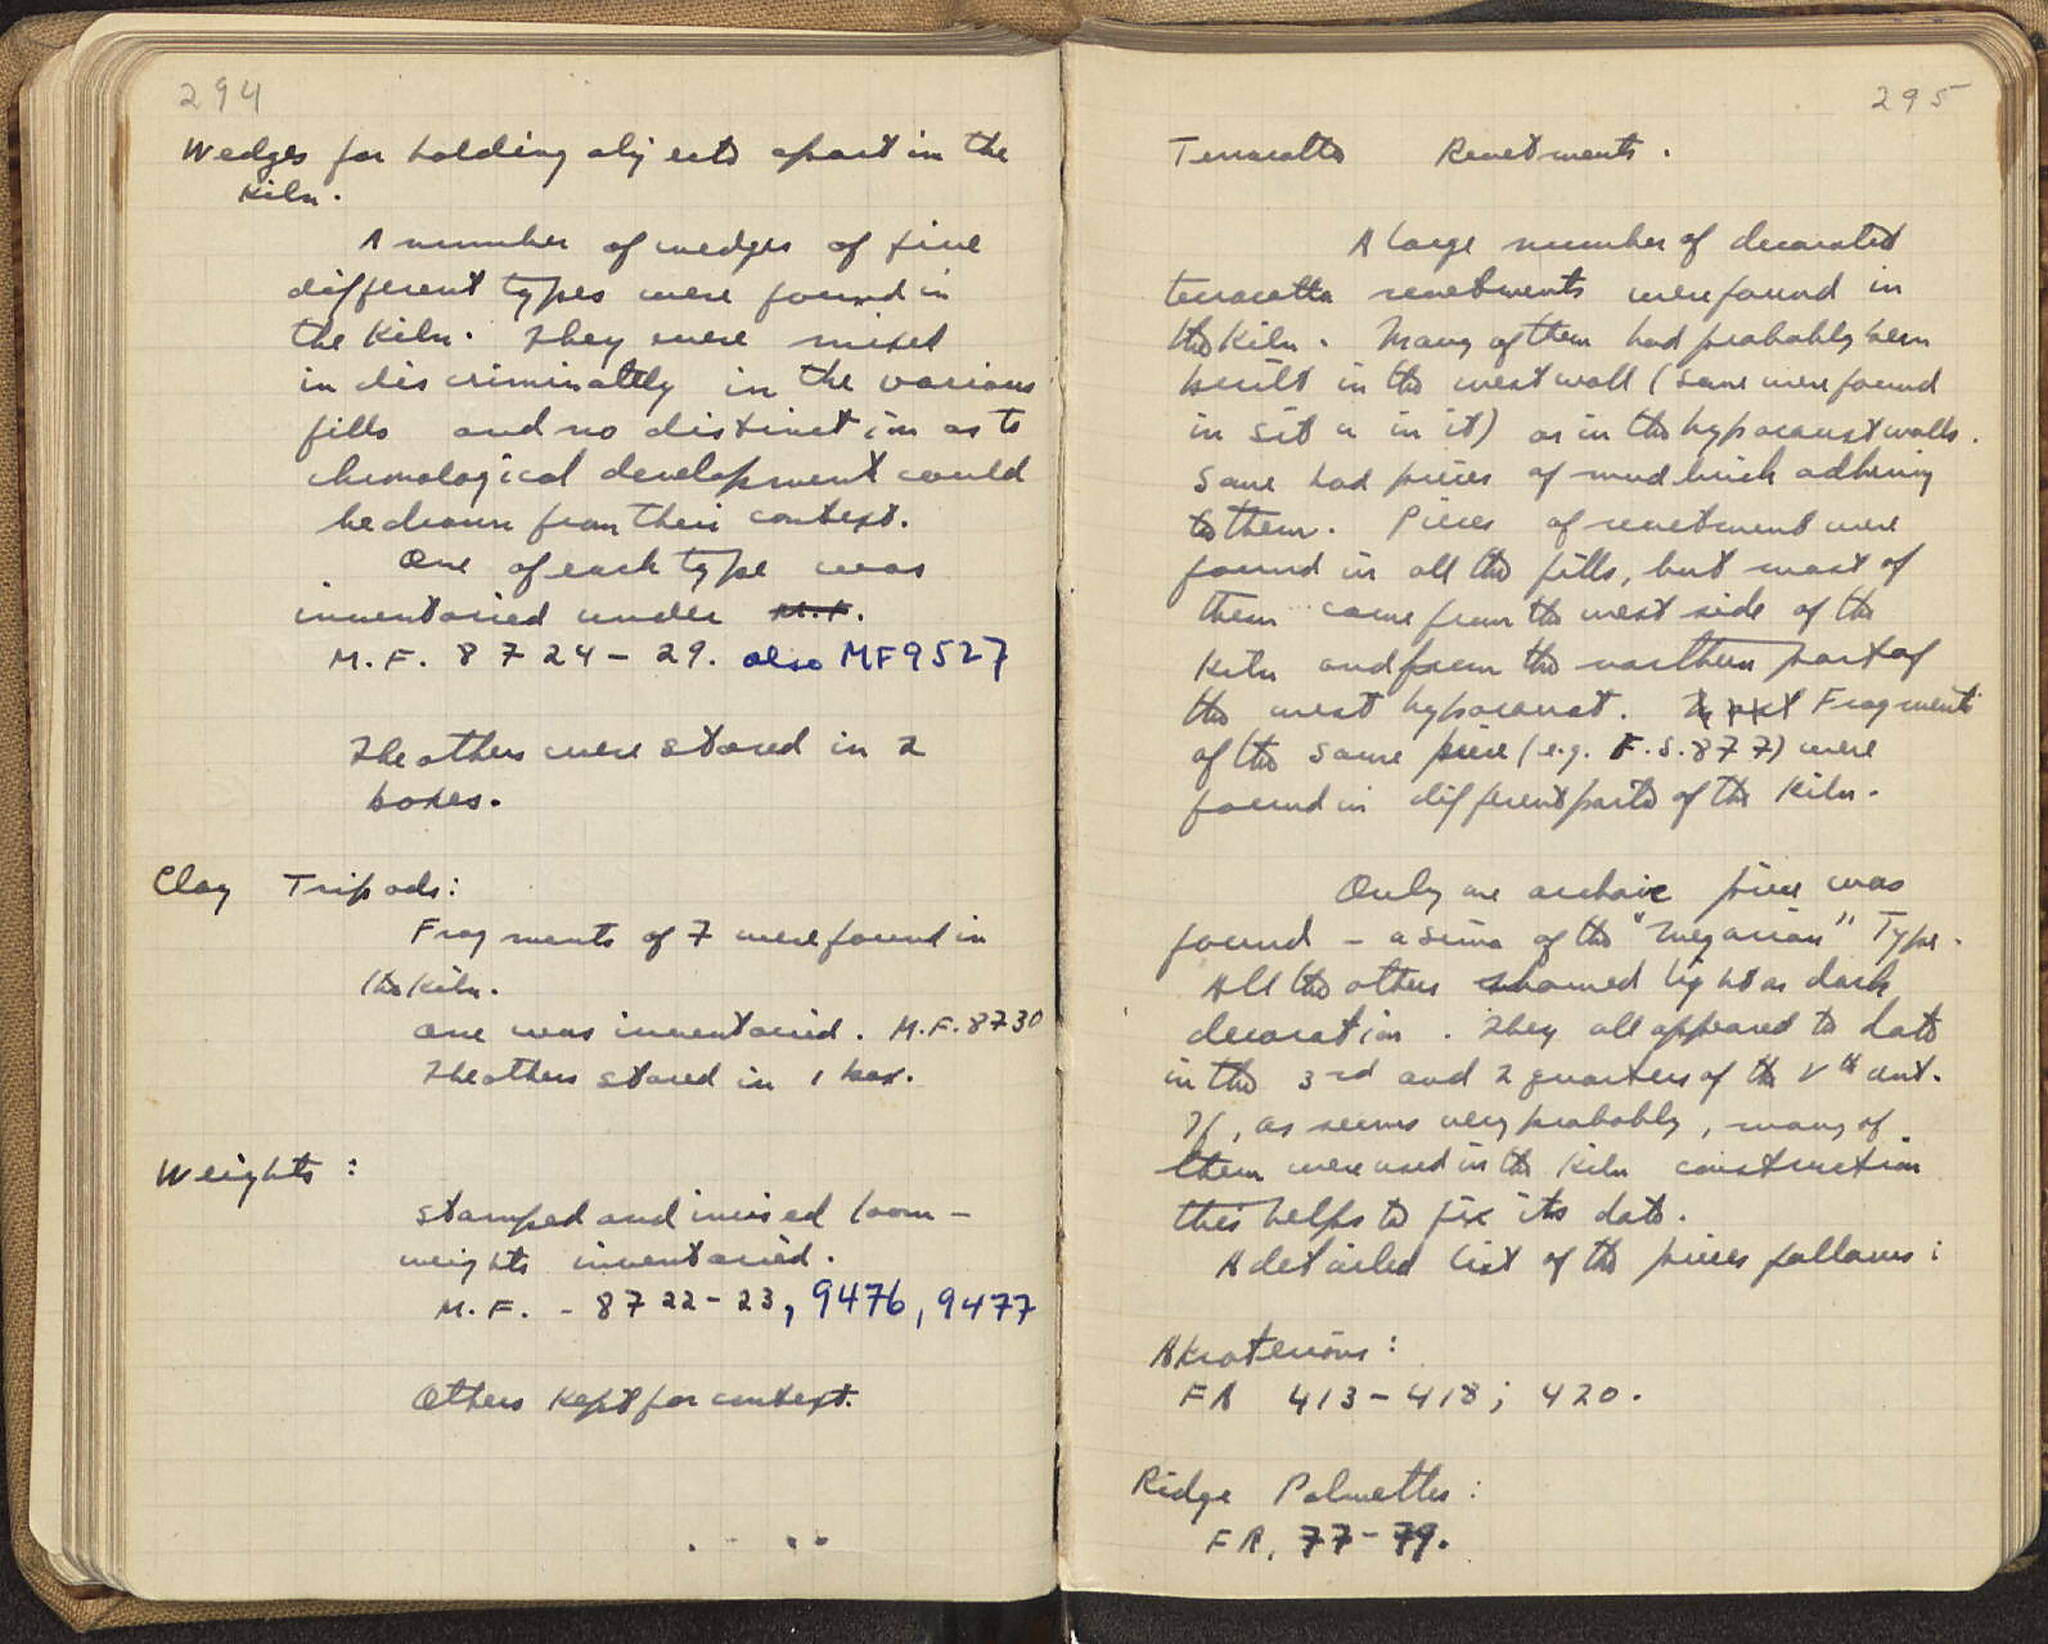 294
Wedges for holding objects apart in the
Kiln.
A number of wedges of five
different types were found in
the Kiln. They were mixed
indiscriminately in the various
fills and no distinction as to
chronological development could
be drawn from their context.
One of each type was
inventoried under M.F.
M.F. 8724-29. also MF9527
The others were stored in 2
boxes.
Clay Tripods:
Fragments of 7 were found in
the Kiln.
One was inventoried. M.F. 8730
The others stored in 1 box.
Weights:
stamped and incised loom-
weights inventoried.
M.F. - 8722-23, 9476, 9477
Others Kept for context.
295
Terracotta Revetments.
A large number of decorated
terracotta revetments were found in
the Kiln. Many of them had probably been
built in the west wall (some were found
in situ in it) or in the hypocaust walls.
Some had pieces of mud brick adhering
to them. Pieces of revetment were
found in all the fills, but most of
them came from the west side of the
Kiln and from the northern part of
the west hypocaust. Fragments
of the same piece (e.g. F.S. 877) were
found in different parts of the Kiln.
Only one archaic piece was
found - a sima of the "Megarian" Type.
All the others showed light on dark
decoration. They all appeared to date
in the 3rd and 2 quarters of the Vth cent.
If, as seems very probably, many of
them were used in the Kiln construction
this helps to fix its date.
A detailed list of the pieces follows:
Akroterions:
FA 413-418; 420.
Ridge Palmettes:
FR. 77-79.